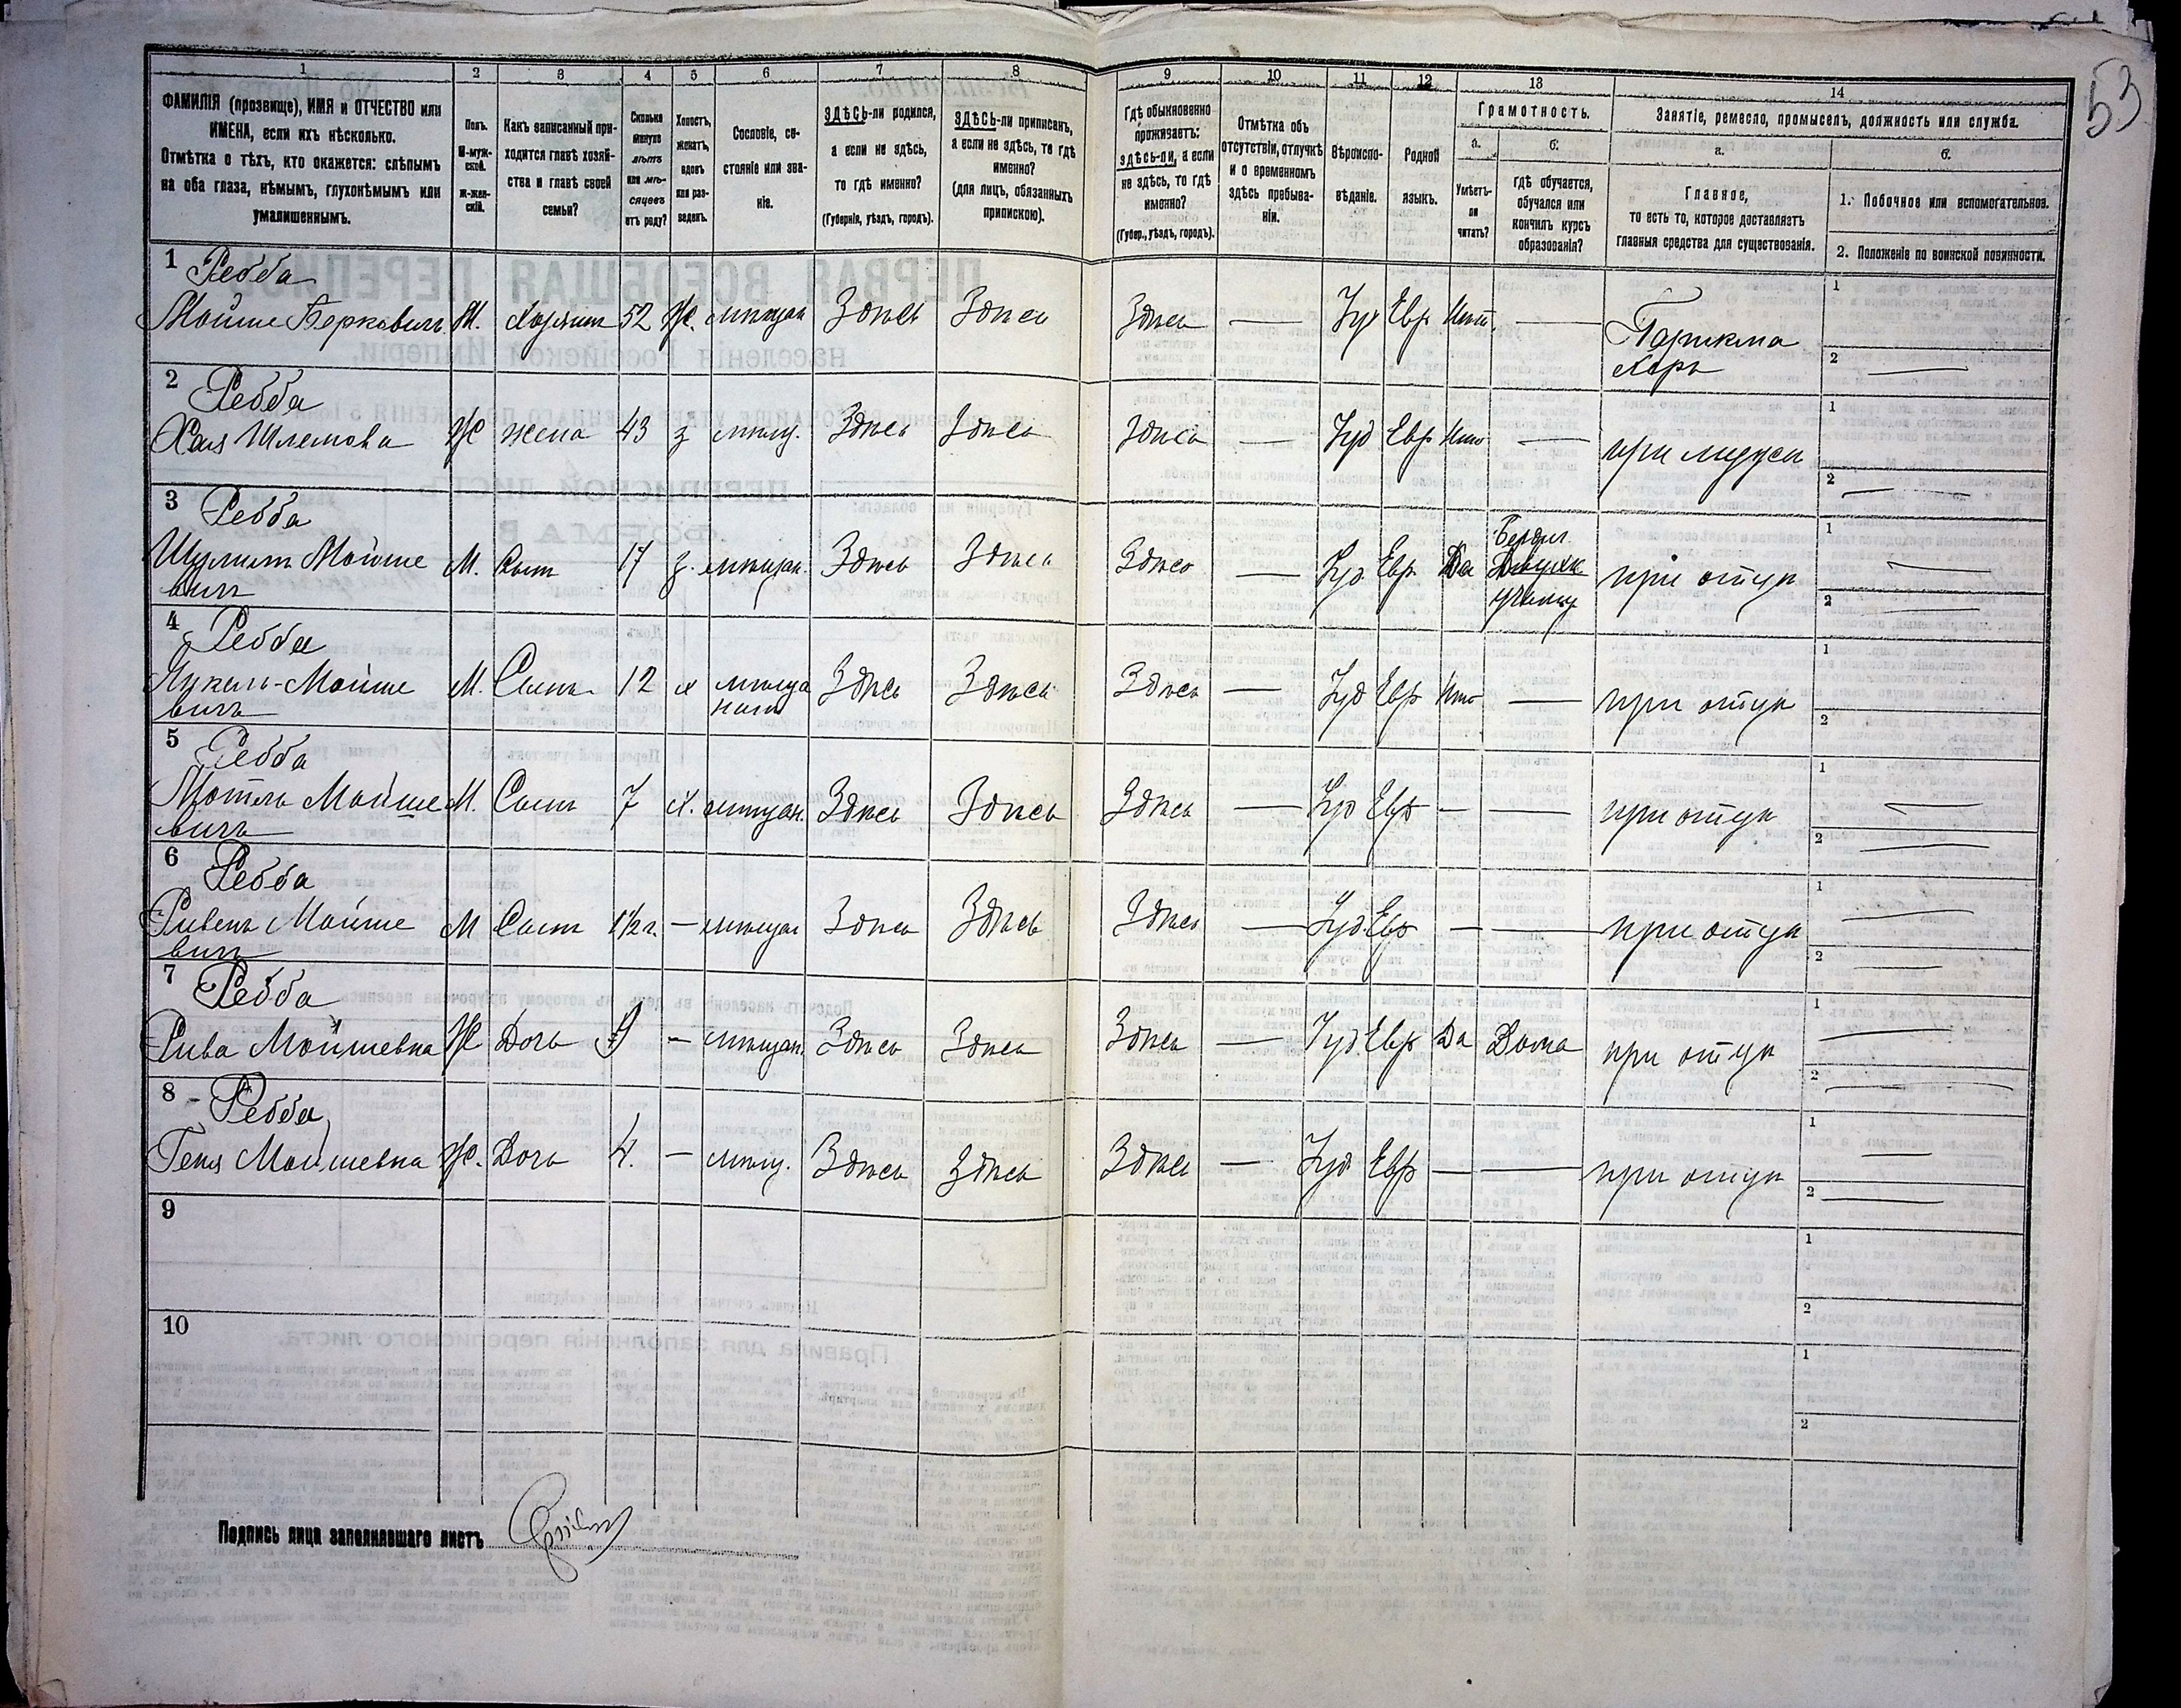 53
1 2 3 4 5 6 7 8 9 10 11 12 13 14
ФАМИЛІЯ (прозвище), ИМЯ и ОТЧЕСТВО или
ИМЕНА, если ихъ нѣсколько.
Отмѣтка о тѣхъ, кто окажется: слѣпымъ
на оба глаза, нѣмымъ, глухонѣмымъ или
умалишеннымъ.
Полъ.
М-муж-
ской.
Ж-жен-
скій.
Какъ записанный при-
ходится главѣ хозяй-
ства и главѣ своей
семьи?
Сколько
минуло
лѣтъ
или мѣ-
сяцевъ
отъ роду?
Холостъ,
женатъ,
вдовъ
или раз-
веденъ.
Сословіе, со-
стояніе или зва-
ніе.
ЗДѢСЬ-ли родился,
а если не здѣсь,
то гдѣ именно?
(Губернія, уѣздъ, городъ).
ЗДѢСЬ-ли приписанъ,
а если не здѣсь, то гдѣ
именно?
(для лицъ, обязанныхъ
припискою).
Гдѣ обыкновенно
проживаетъ:
здѣсь-ли, а если
не здѣсь, то гдѣ
именно?
(Губер., уѣздъ, городъ).
Отмѣтка объ
отсутствіи, отлучкѣ
и о временномъ
здѣсь пребыва-
ніи.
Вѣроиспо-
вѣданіе.
Родной
языкъ.
Грамотность.
а.
Умѣетъ-
ли
читать?
б.
гдѣ обучается,
обучался или
кончилъ курсъ
образованія?
Занятіе, ремесло, промыселъ, должность или служба.
а.
Главное,
то есть то, которое доставляетъ
главныя средства для существованія.
б.
1. Побочное или вспомогательное.
2. Положеніе по воинской повинности.
1 Ребба
Мойше Берковичъ М. Хозяин 52 Ж. мѣщан Здѣсь Здѣсь Здѣсь — Іуд Евр Нѣт. —
1
2 —
2 Ребба
Хая Шлемова Ж жена 43 з мѣщ. Здѣсь Здѣсь Здѣсь — Іуд Евр Нѣт — при мужѣ
1
2 —
3 Ребба
Мойше М. Сынъ 17 мѣщан. Здѣсь Здѣсь Здѣсь — Іуд. Евр. Да при отцѣ
вичъ
1 —
2 —
4 Ребба
Янкель-Мойше М. Сынъ 12 х мѣща Здѣсь Здѣсь Здѣсь — Іуд Евр Нѣт — при отцѣ
вичъ нинъ
1
2
5 Ребба
Мотель Мойше М. Сынъ 7 х. мѣщан. Здѣсь Здѣсь Здѣсь — Іуд Евр — — при отцѣ
вичъ
1 —
2 —
6 Ребба
Рувенъ Мойше М Сынъ 1½ г. — мѣщан Здѣсь Здѣсь Здѣсь — Іуд. Евр — — при отцѣ
вичъ
1 —
2 —
7 Ребба
Рива Мойшевна Ж Дочь 9 — мѣщан. Здѣсь Здѣсь Здѣсь — Іуд Евр Да Дома при отцѣ
1 —
2 —
8 - Ребба
Геня Мойшевна Ж. Дочь 4. — мѣщ. Здѣсь Здѣсь Здѣсь — Іуд Евр — — при отцѣ
1 —
2 —
9
1
2
10
1
2
Подпись лица заполнявшаго листъ